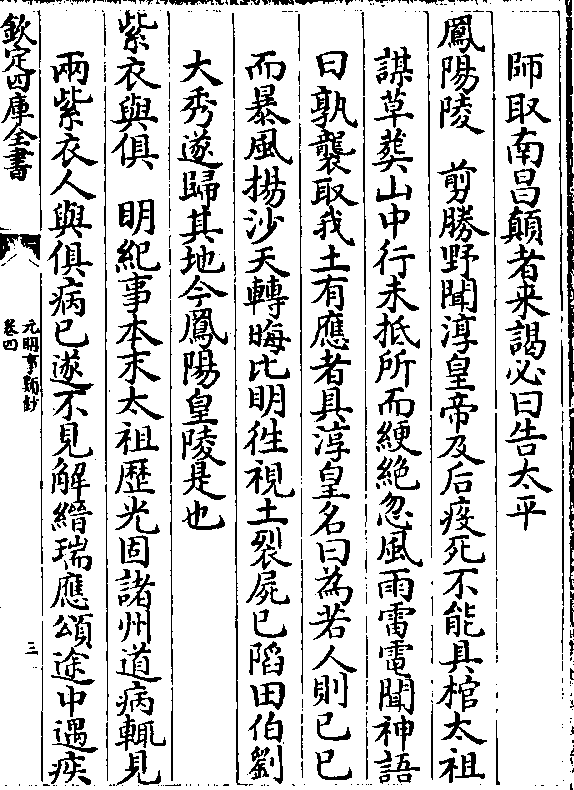 師取南昌顛者来謁必曰告太平
鳳陽陵　剪勝野聞淳皇帝及后疫死不能具棺太祖
謀草葬山中行未抵所而綆絶忽風雨雷電聞神語
曰孰襲取我土有應者具淳皇名曰為若人則已已
而暴風揚沙天轉晦比明徃視土裂屍已䧟田伯劉
大秀遂歸其地今鳳陽皇陵是也
紫衣與俱　明紀事本末太祖歴光固諸州道病輒見
兩紫衣人與俱病已遂不見解縉瑞應頌途中遇疾
欽定四庫全書
元明事類鈔
卷四
三